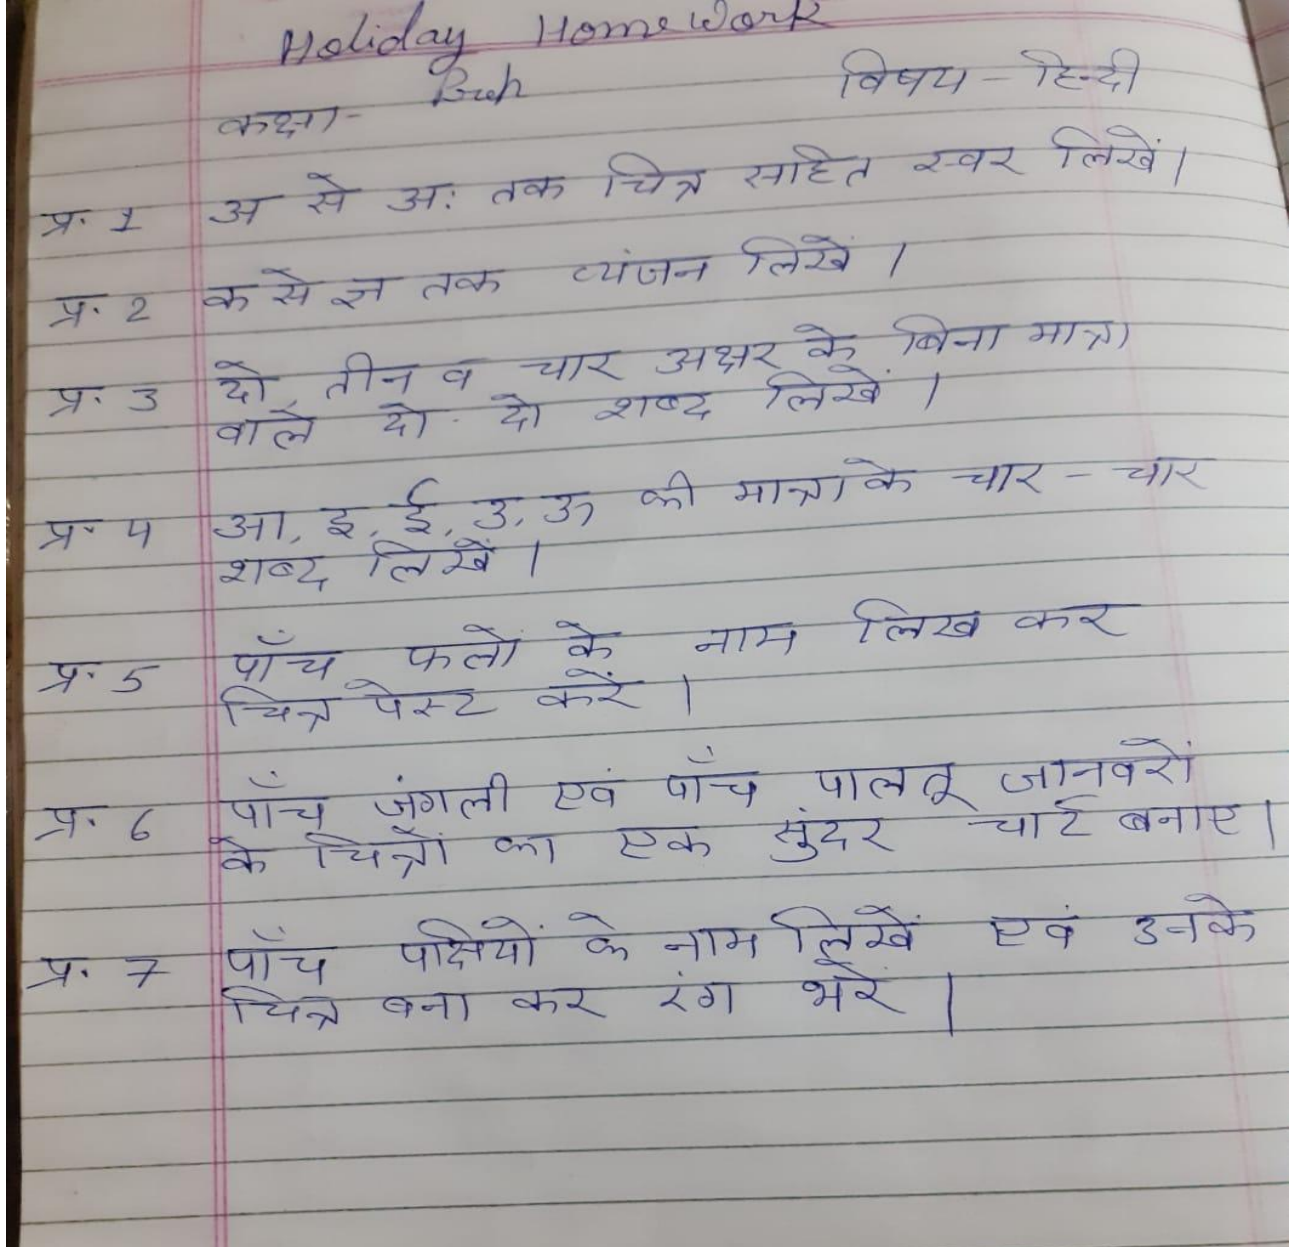 Holiday Home Work
कक्षा- Prep विषय - हिन्दी
प्र. 1 अ से अ: तक चित्र सहित स्वर लिखें।
प्र. 2 क से ज्ञ तक व्यंजन लिखें।
प्र. 3 दो, तीन व चार अक्षर के बिना मात्रा
वाले दो - दो शब्द लिखें।
प्र. 4 आ, इ, ई, उ, ऊ की मात्रा के चार - चार
शब्द लिखें।
प्र. 5 पाँच फलों के नाम लिख कर
चित्र पेस्ट करें।
प्र. 6 पाँच जंगली एवं पाँच पालतू जानवरों
के चित्रों का एक सुंदर चार्ट बनाए।
प्र. 7 पाँच पक्षियों के नाम लिखें एवं उनके
चित्र बना कर रंग भरें।